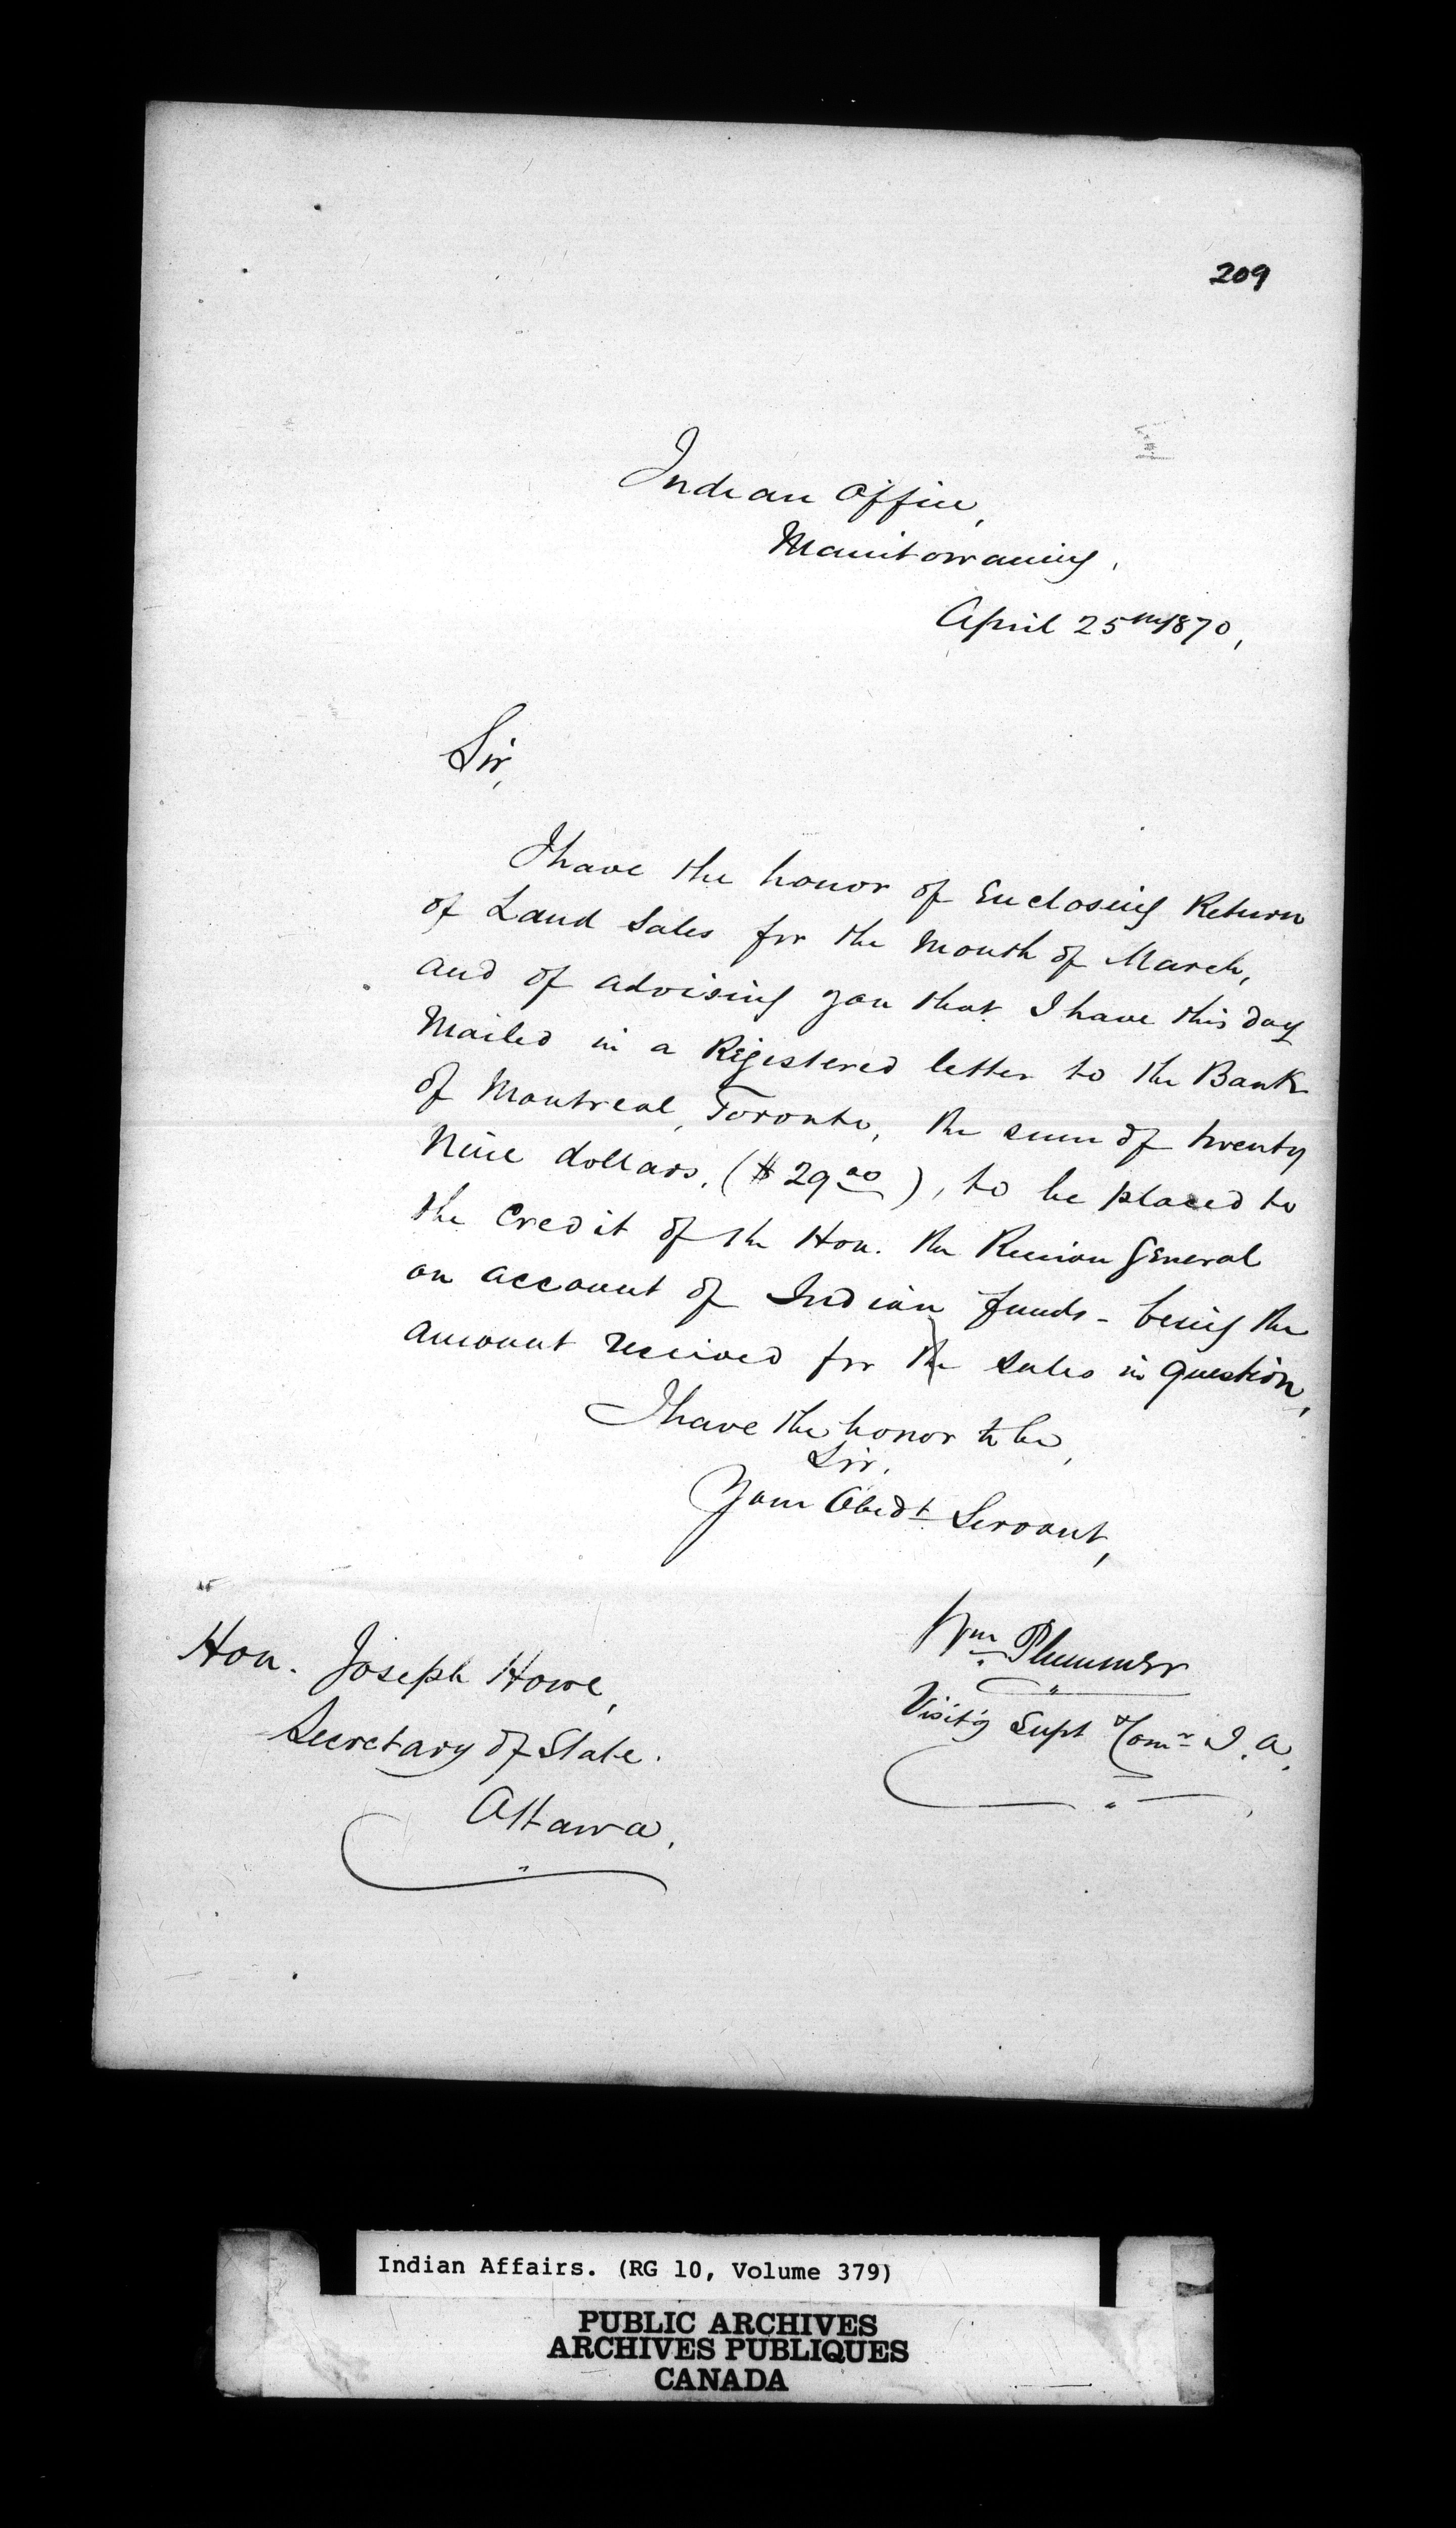 209
Indian Office,
Manitowaning,
April 25th 1870,
Sir,
I have the honor of Enclosing Return
of Land Sales for the Month of March,
and of advising you that I have this day
Mailed in a Registered letter to the Bank
of Montreal, Toronto, the sum of twenty
Nine dollars, ($29.00), to be placed to
the Credit of the Hon. the Receiver General
on account of Indian funds - being the
amount received for the sales in question,
I have the honor to be,
Sir,
Your Obedt Servant,
Wm Plummer
Visit'g Supt & Comr I. A.
Hon. Joseph Howe,
Secretary of State.
Ottawa.
Indian Affairs. (RG 10, Volume 379)
PUBLIC ARCHIVES
ARCHIVES PUBLIQUES
CANADA